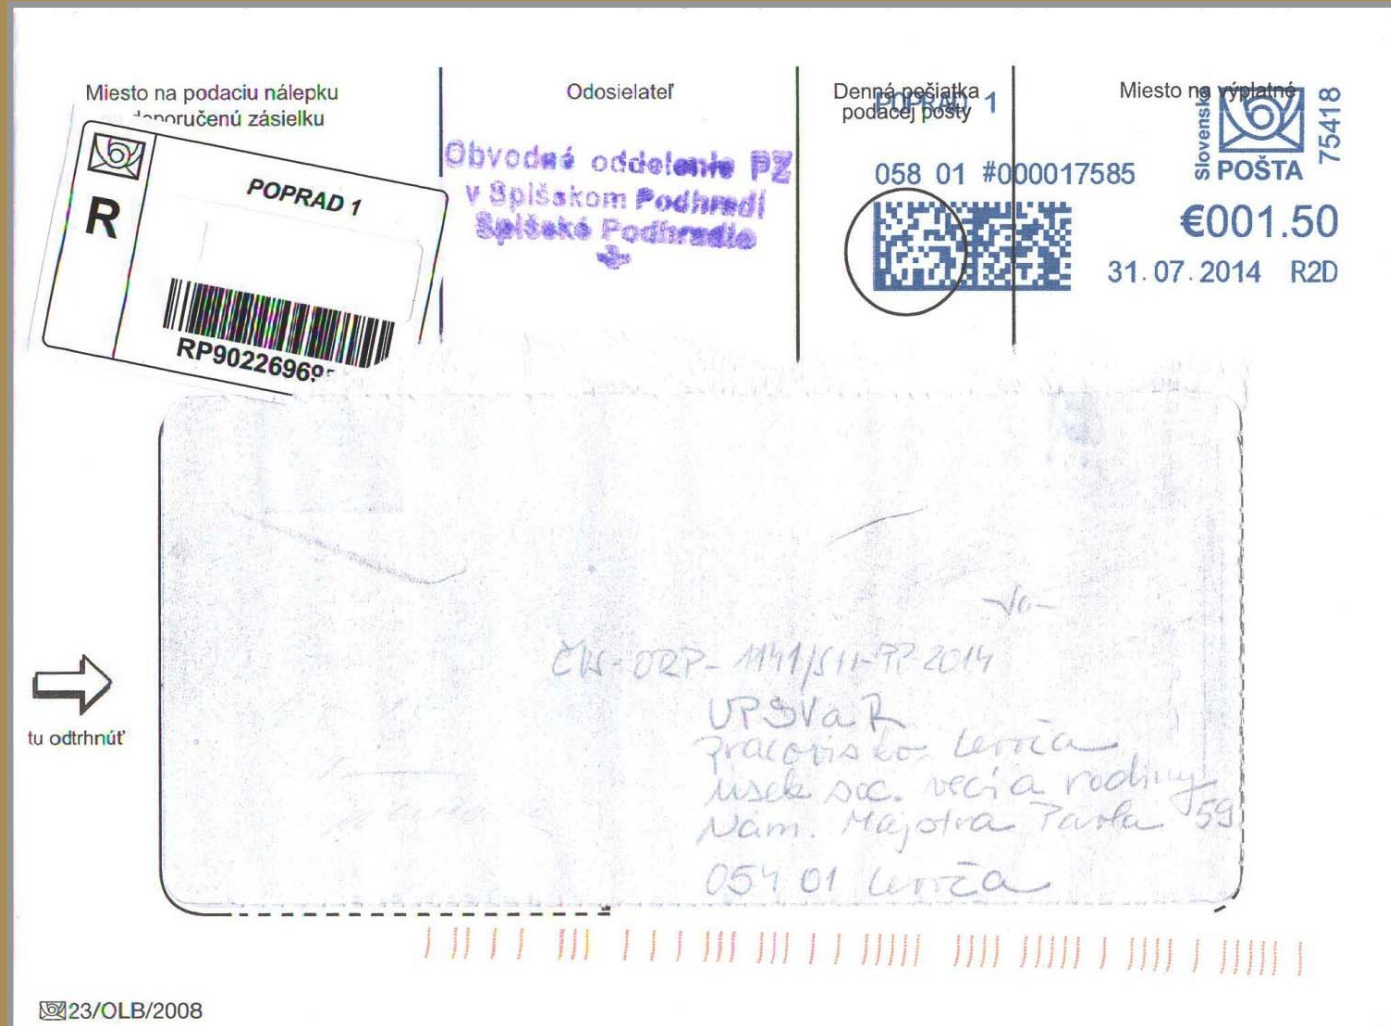 Miesto na podaciu nálepku
doporučenú zásielku
R
POPRAD 1
RP90226969
Odosielateľ
Obvodné oddelenie PZ
v Spišskom Podhradí
Spišské Podhradie
Denná pečiatka
podacej pošty
POPRAD 1
058 01 #000017585
Miesto na výplatné
Slovenská
POŠTA
75418
€001.50
31.07.2014 R2D
tu odtrhnúť
UPSVaR
pracovisko Levoča
úsek soc. vecí a rodiny
Nám. Majstra Pavla 59
054 01 Levoča
23/OLB/2008